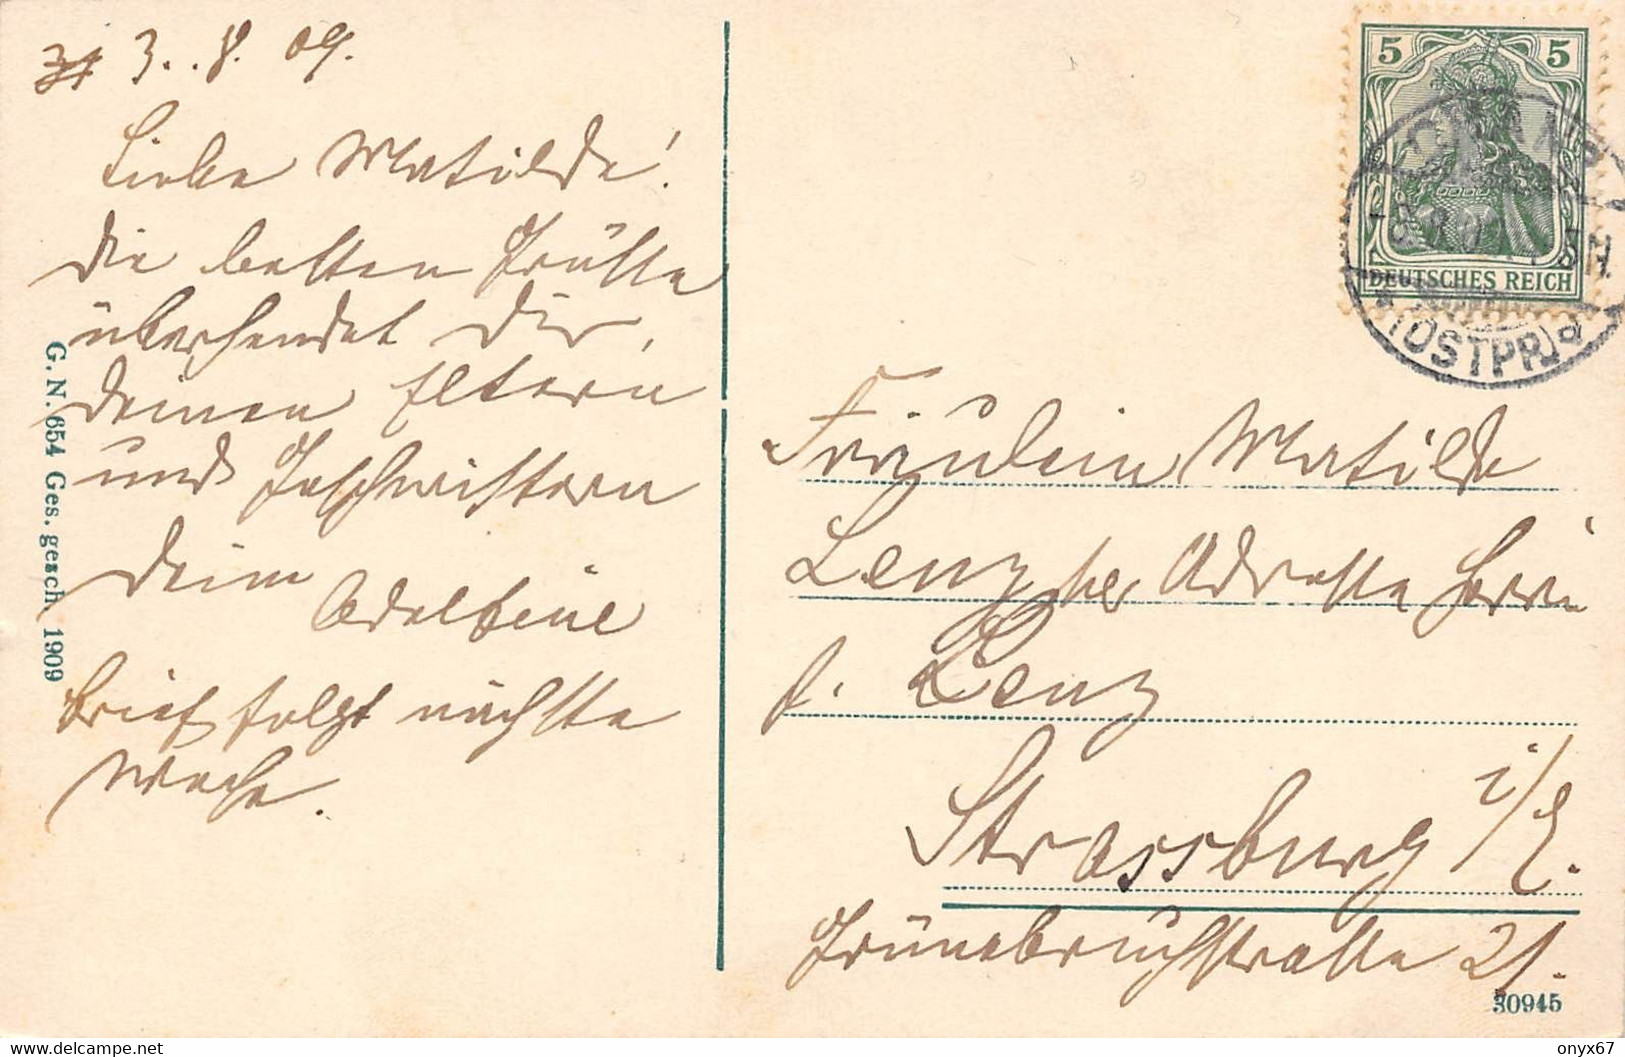 3. 8. 09.
Liebe Matilde!
Die besten Grüsse
übersendet Dir,
deinen Eltern
und Geschwistern
Deine
Adelheid
Brief folgt nächste
Woche.
G. N. 654 Ges. gesch. 1909
5 5
DEUTSCHES REICH
(OSTPR)
Fräulein Matilde
Lenz per Adresse Herrn
J. Lenz
Strassburg i/E.
Grünebruchstrasse 21.
30945
onyx67